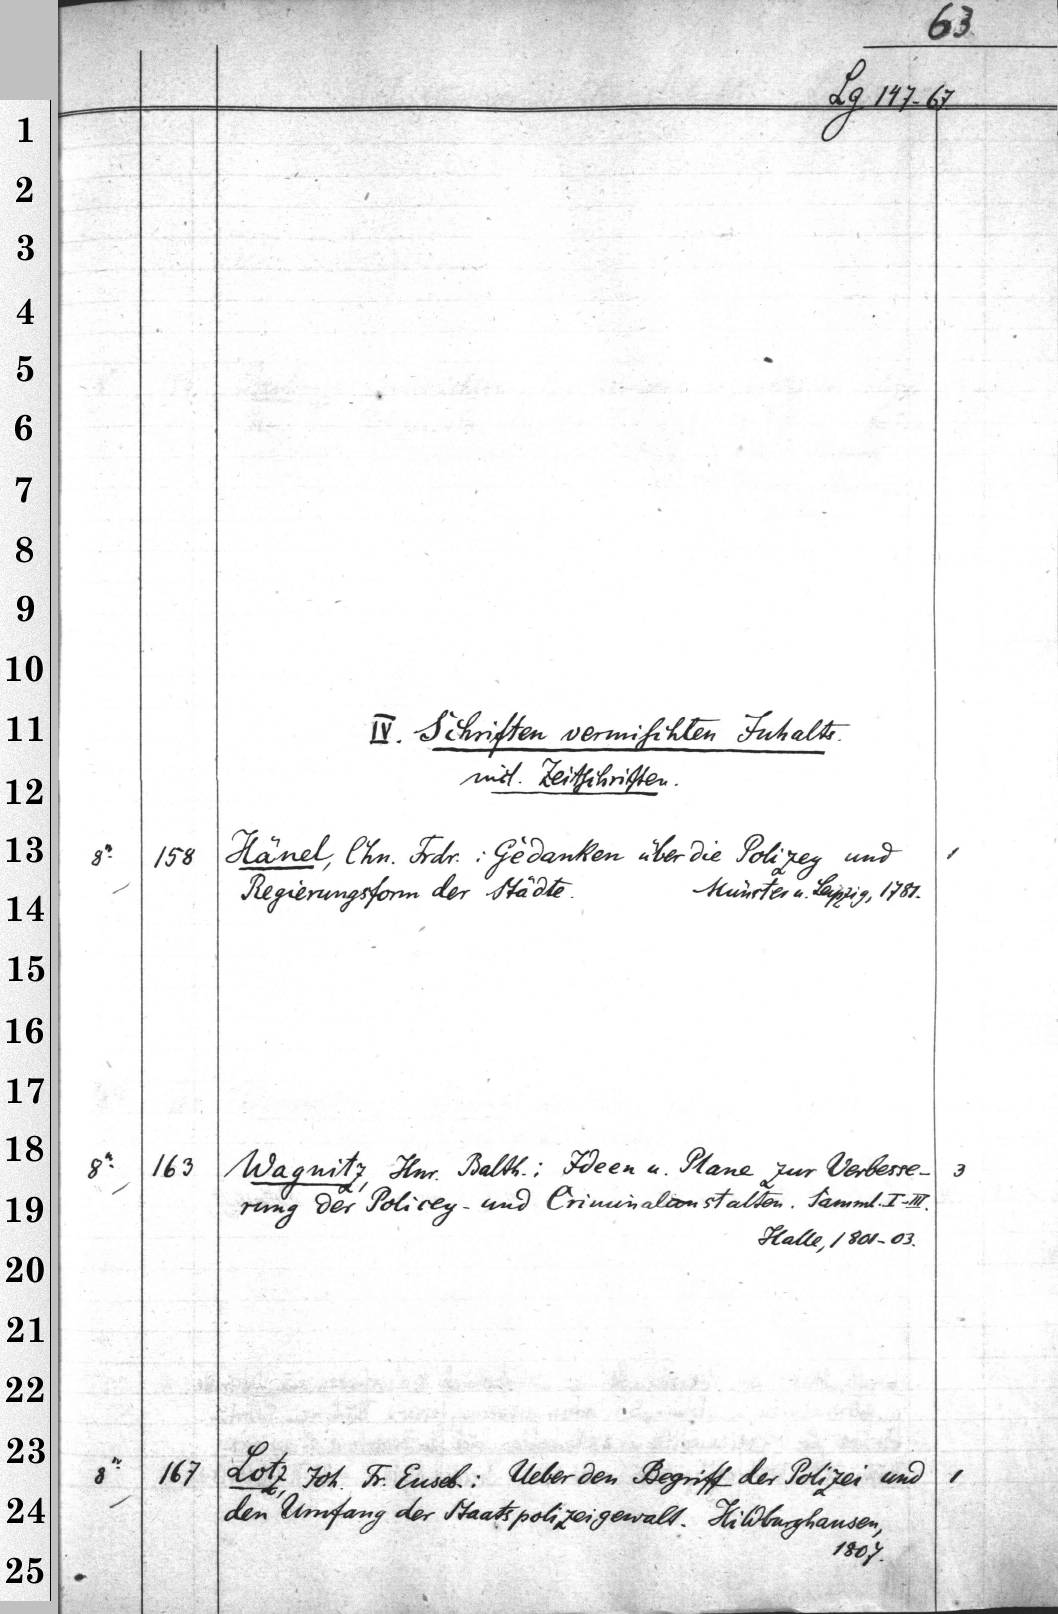 63
Lg 147-67
1
2
3
4
5
6
7
8
9
10
11 IV. Schriften vermischten Inhalts.
12 incl. Zeitschriften.
13 8° 158 Hänel, Chn. Frdr.: Gedanken über die Polizey und 1
14 Regierungsform der Städte. Münster u. Leipzig, 1781.
15
16
17
18 8° 163 Wagnitz, Hnr. Balth.: Ideen u. Plane zur Verbesse- 3
19 rung der Policey- und Criminalanstalten. Samml. I-III.
Halle, 1801-03.
20
21
22
23 8° 167 Lotz, Joh. Fr. Euseb.: Ueber den Begriff der Polizei und 1
24 den Umfang der Staatspolizeigewalt. Hildburghausen,
1807.
25